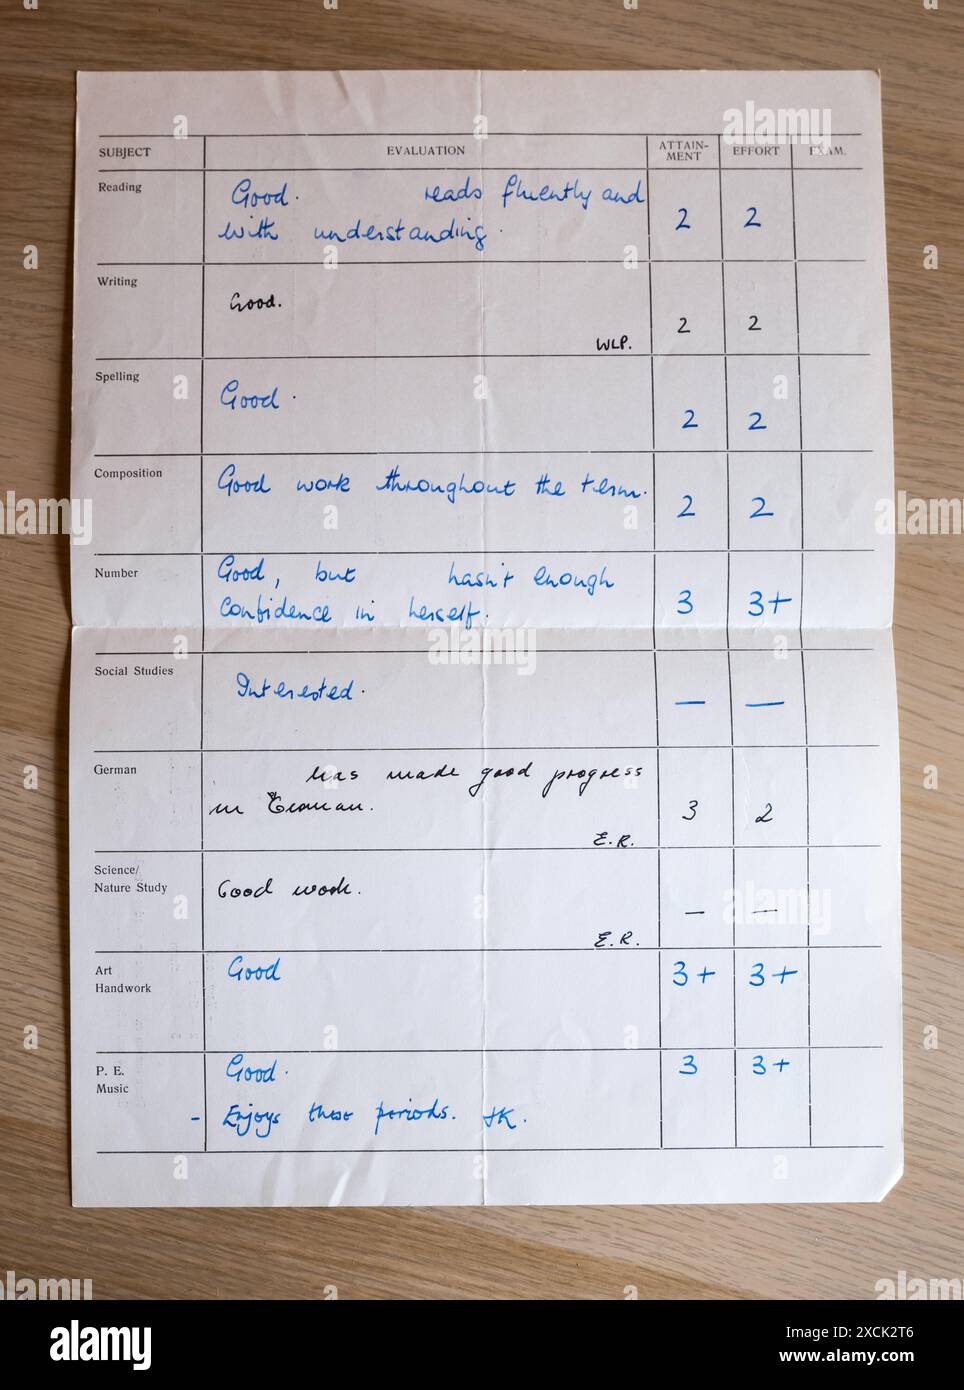 SUBJECT EVALUATION ATTAIN-MENT EFFORT EXAM.
Reading Good. reads fluently and
with understanding. 2 2
Writing Good.
WLP. 2 2
Spelling Good. 2 2
Composition Good work throughout the term. 2 2
Number Good, but hasn't enough
confidence in herself. 3 3+
Social Studies Interested. — —
German has made good progress
in German. 3 2
E.R.
Science/
Nature Study Good work. – –
E.R.
Art Good 3+ 3+
Handwork
P. E. Good. 3 3+
Music
- Enjoys these periods. JK.
alamy
Image ID: 2XCK2T6
www.alamy.com